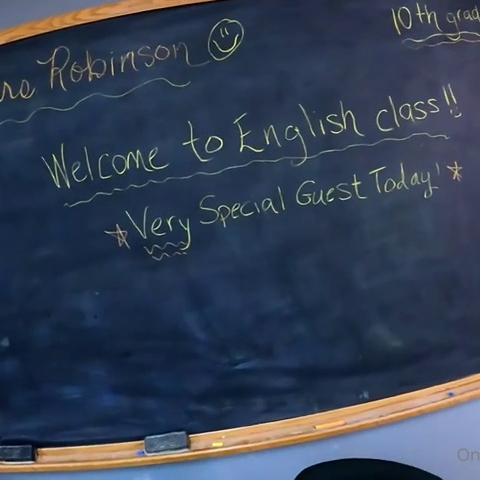 Robinson
10th
Welcome to English class!!
Very Special Guest Today!